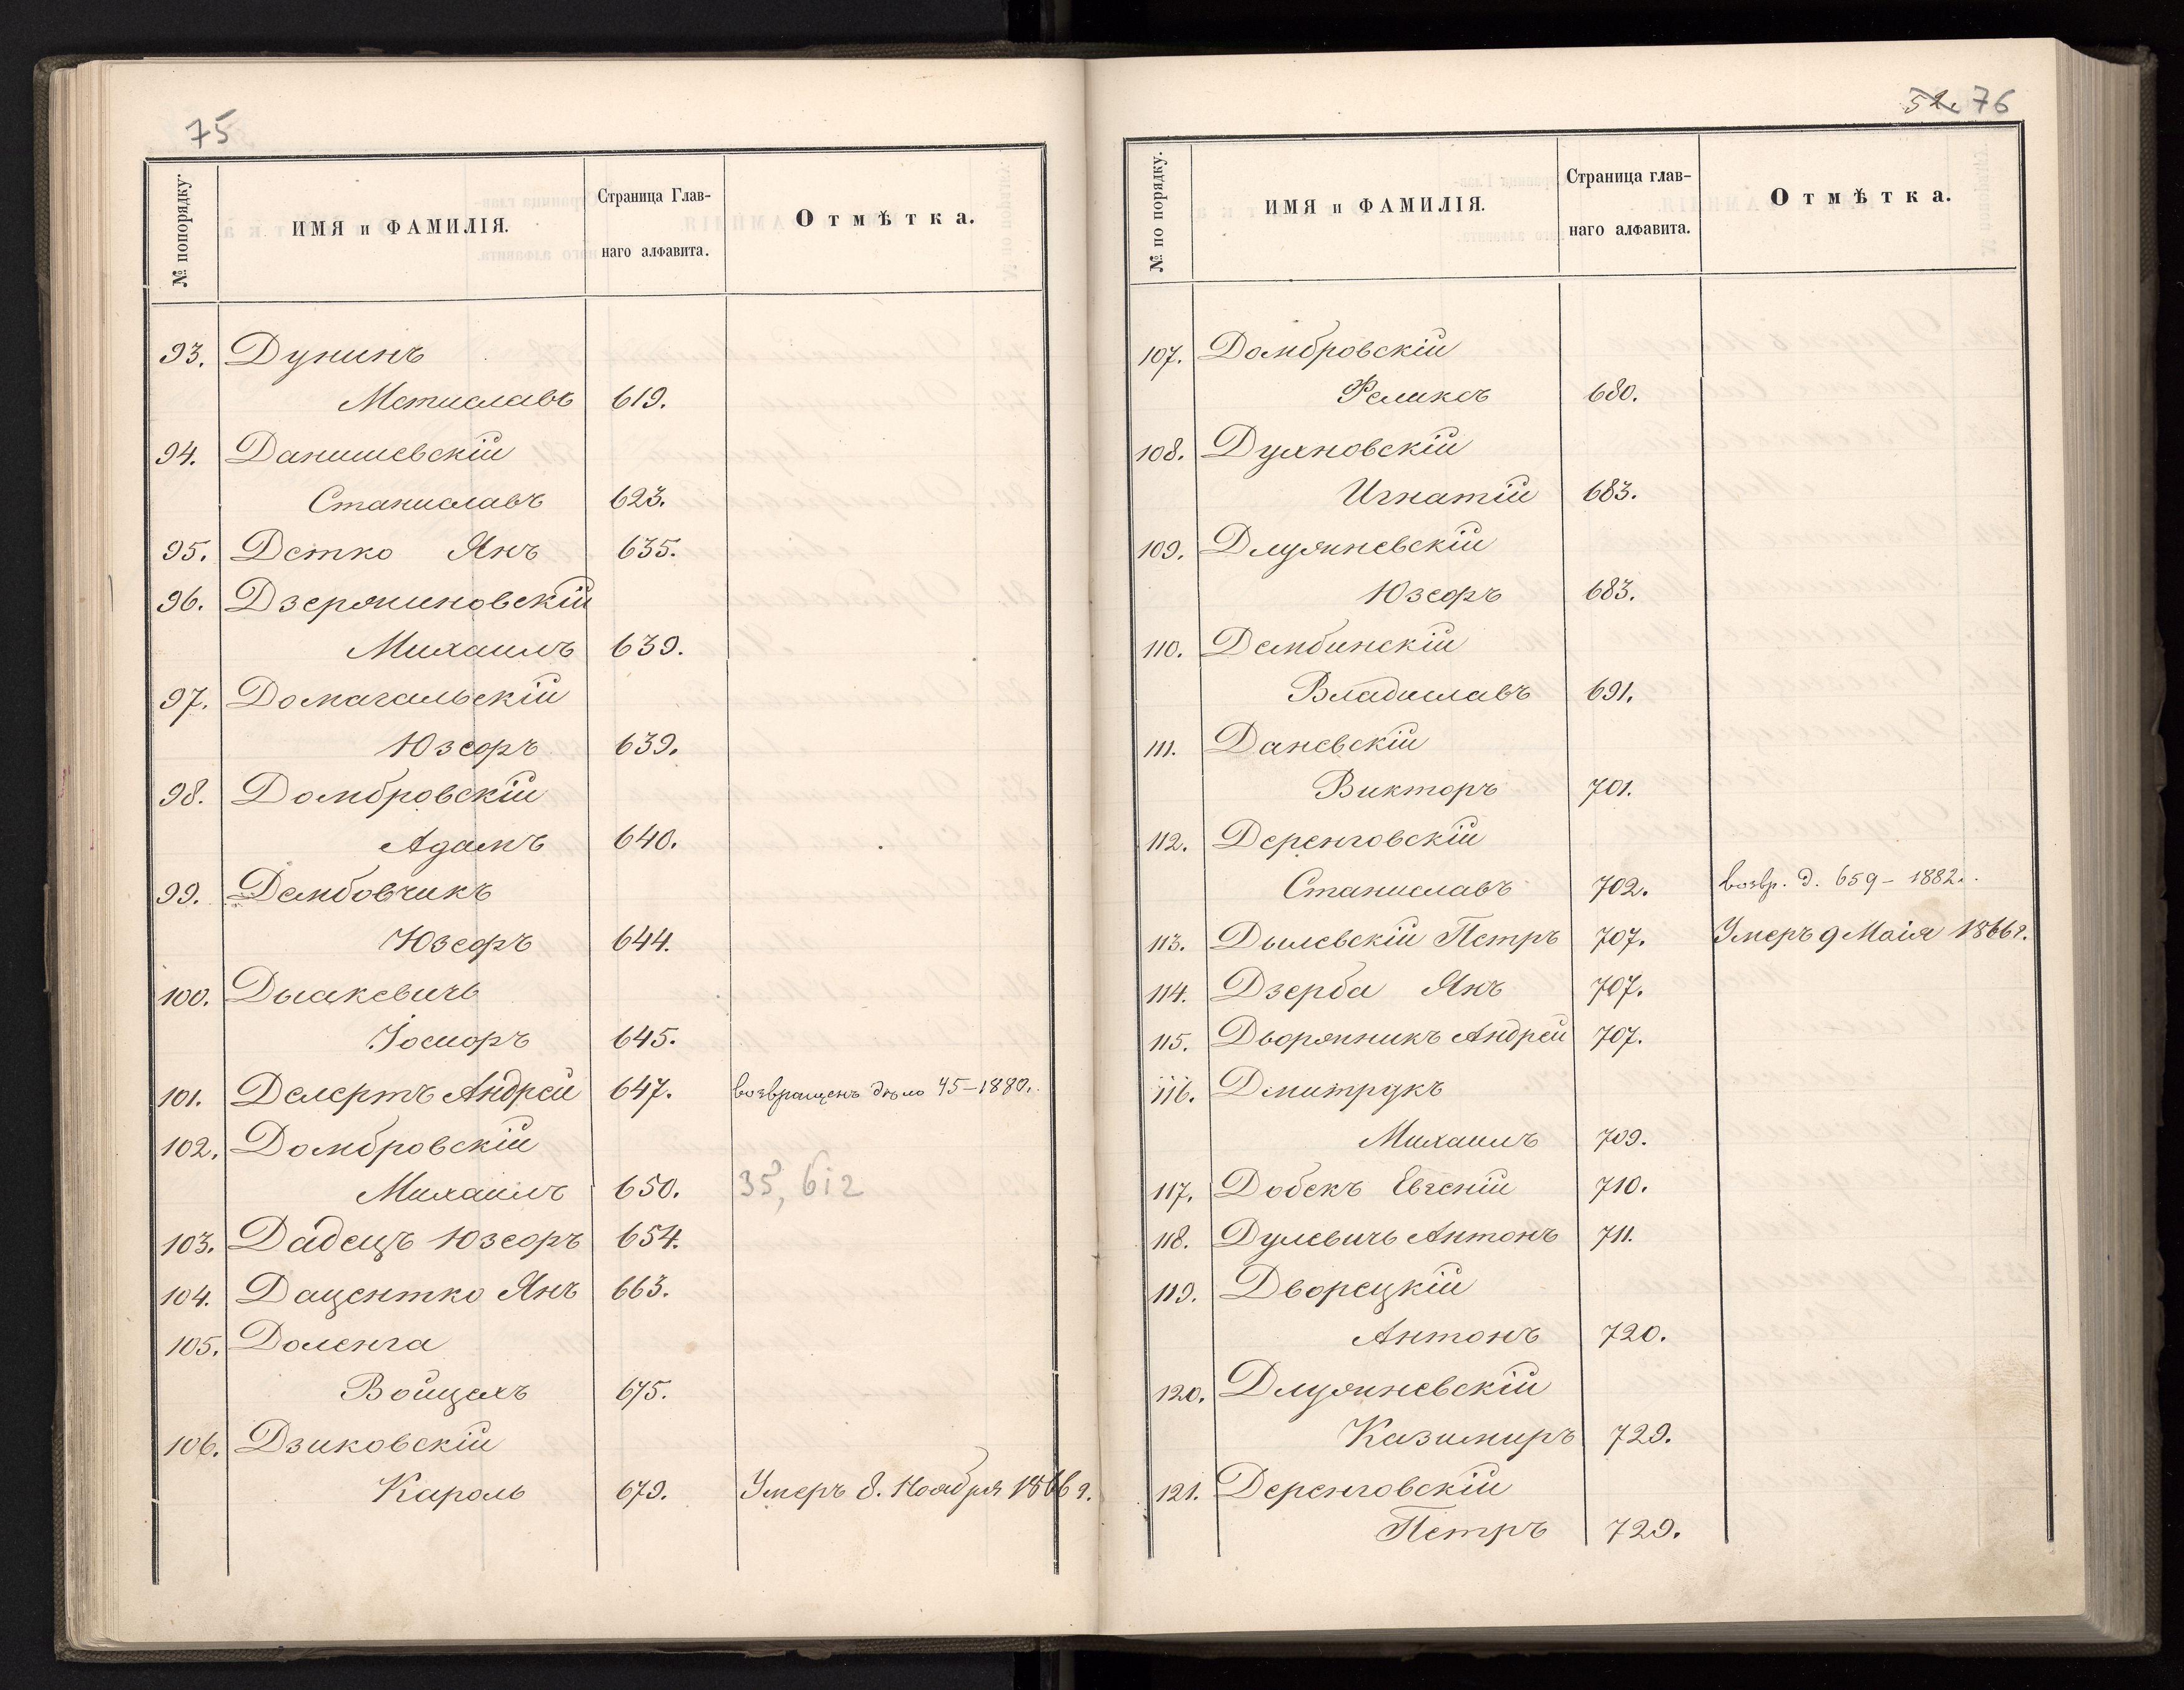 75
№ попорядку.
ИМЯ и ФАМИЛІЯ.
Страница Глав-
наго алфавита.
Отмѣтка.
93. Дунинъ
Мстиславъ 619.
94. Данишевскій
Станиславъ 623.
95. Детко Янъ 635.
96. Дзержиновскій
Михаилъ 639.
97. Домагальскій
Юзефъ 639.
98. Домбровскій
Адамъ 640.
99. Дембовчикъ
Юзефъ 644.
100. Дысакевичъ
Іосифъ 645.
101. Делертъ Андрей 647. возвращенъ дѣло 45-1880.
102. Домбровскій
Михаилъ 650. 35, 6і2
103. Дадецъ Юзефъ 654.
104. Дацентко Янъ 663.
105. Доленга
Войцехъ 675.
106. Дзиковскій
Кароль 679. Умеръ 8. Ноября 1866 г.
52. 76
№ по порядку.
ИМЯ и ФАМИЛІЯ.
Страница глав-
наго алфавита.
Отмѣтка.
107. Домбровскій
Феликсъ 680.
108. Духновскій
Игнатій 683.
109. Длужневскій
Юзефъ 683.
110. Дембинскій
Владиславъ 691.
111. Даневскій
Викторъ 701.
112. Деренговскій
Станиславъ 702. возвр. д. 659-1882.
113. Дылевскій Петръ 707. Умеръ 9 Маія 1866 г.
114. Дзерба Янъ 707.
115. Дворжникъ Андрей 707.
116. Дмитрукъ
Михаилъ 709.
117. Добекъ Евгеній 710.
118. Дулевичъ Антонъ 711.
119. Дворецкій
Антонъ 720.
120. Длужневскій
Казимиръ 729.
121. Деренговскій
Петръ 729.